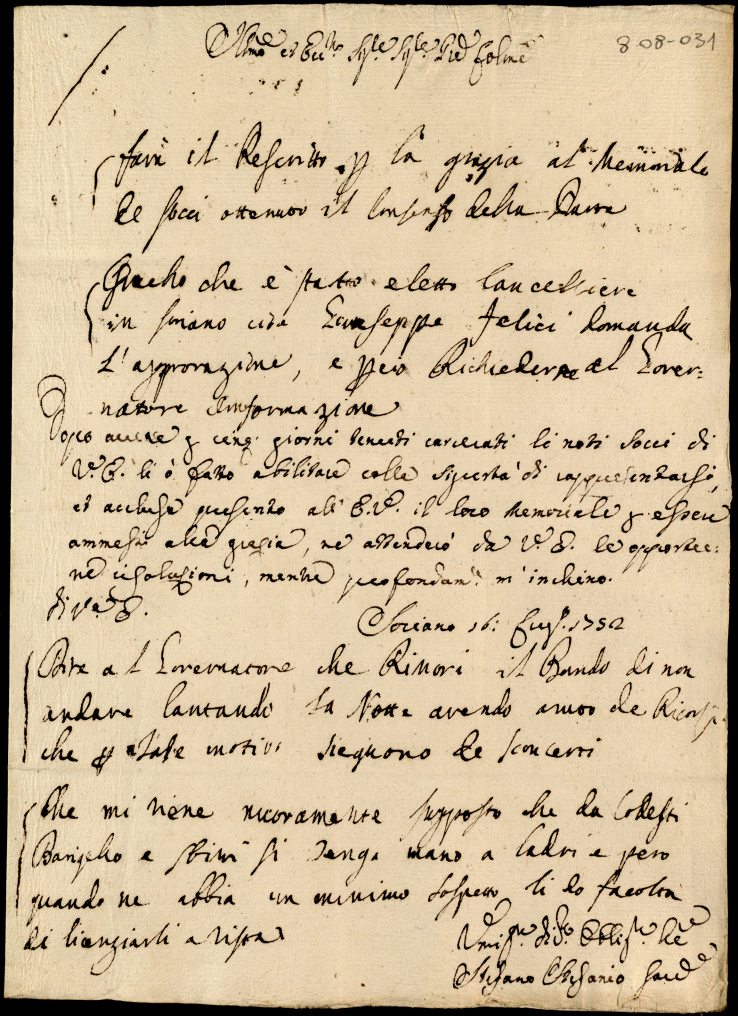 808-031
Ill.mo et Ecc.mo Sig.re Sig.re Pad. Colmo
farà il Rescritto p la grazia al Memoriale
de socci ottenuto il Consenso della Parte
Quello che è stato eletto Cancelliere
in soriano cioè Giuseppe Felici domanda
L'approvazione, e p ciò Richiederne al Gover:
natore Informazione
Dopo avere p cinq. giorni tenuti carcerati li noti socci di
V.E. li ò fatto abilitare colla sigurtà di rappresentarsi,
et accluse presento all' E.V. il loro Memoriale p essere
ammessi alla grazia, ne attenderò da V.E. le opportu:
ne risoluzioni, mentre profondam.e m' inchino.
di V.a E.
Soriano 16: Lug. 1752
Dire al Governatore che Rinovi il Bando di non
andare Cantando la Notte avendo avuto de Ricorsi
che p tale motivo sieguono de sconcerti
Che mi viene nuovamente supposto che da Codesti
Barigello e sbirri si tenga mano a ladri e però
quando ne abbia un minimo sospetto li do facoltà
di licenziarli a vista
Umi.mo Obblig.mo
Stefano